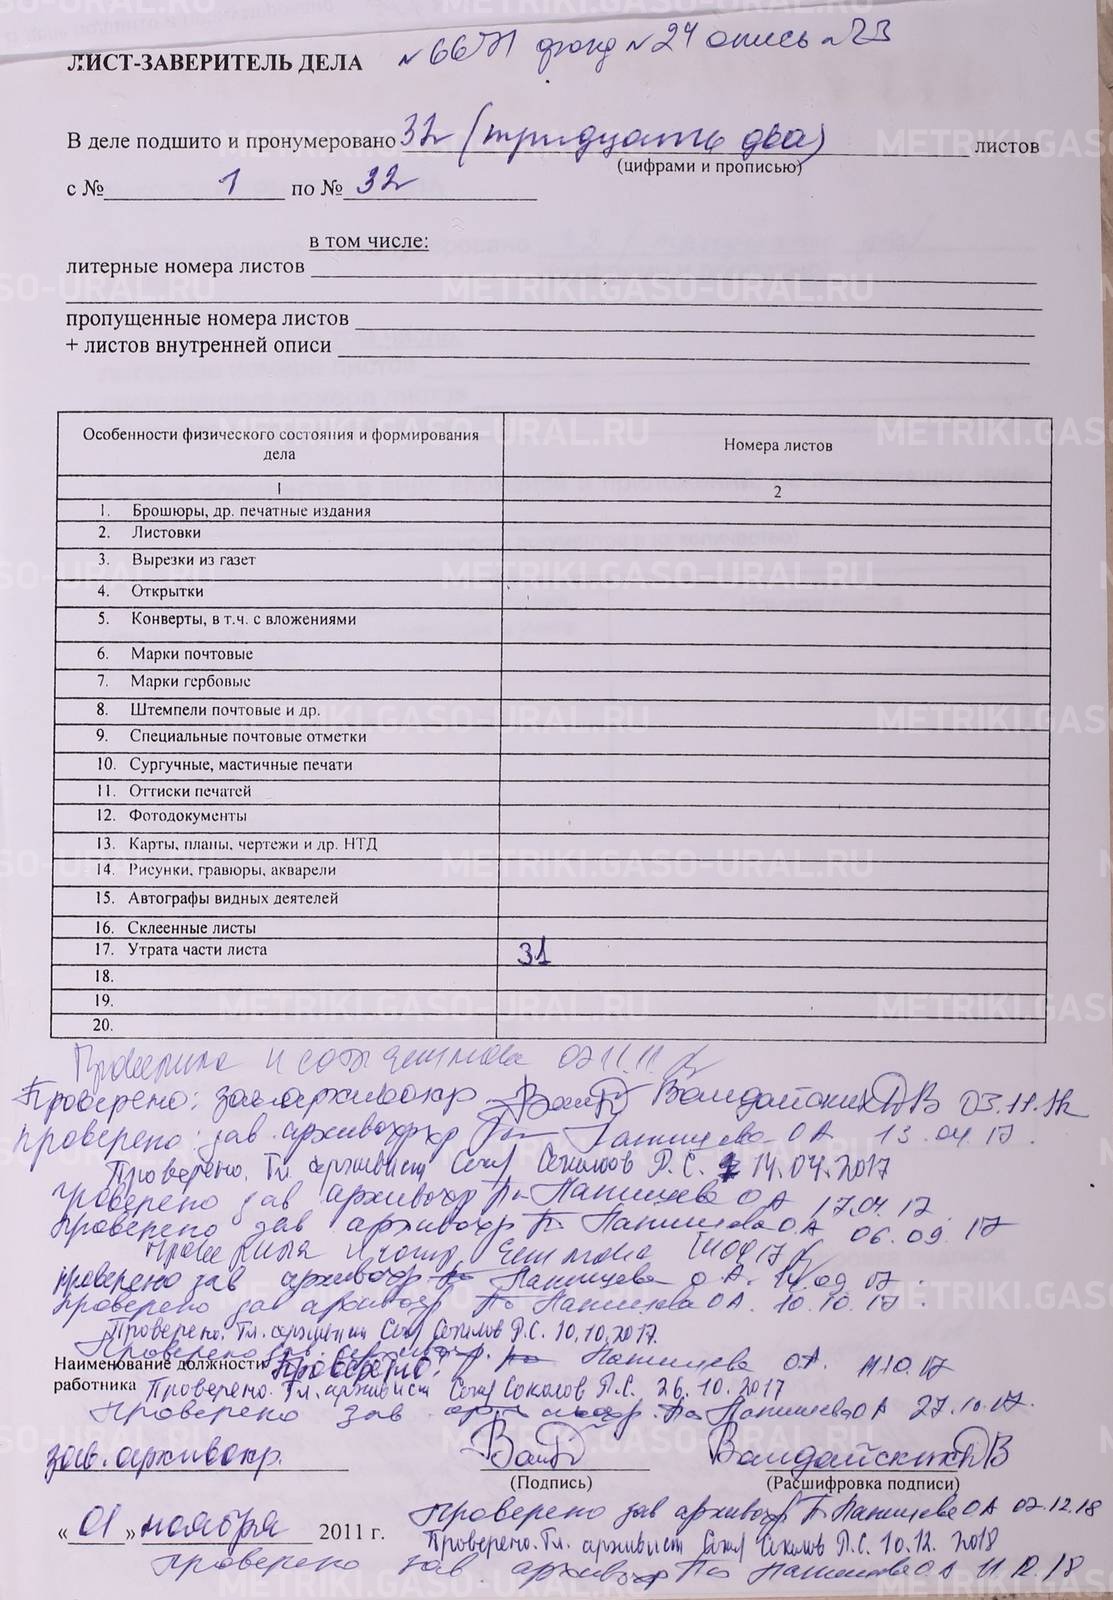 ЛИСТ-ЗАВЕРИТЕЛЬ ДЕЛА № 6671 фонд № 24 опись № 23
В деле подшито и пронумеровано 32 (тридцать два) листов
(цифрами и прописью)
с № 1 по № 32
в том числе:
литерные номера листов
пропущенные номера листов
+ листов внутренней описи
Особенности физического состояния и формирования дела Номера листов
1 2
1. Брошюры, др. печатные издания
2. Листовки
3. Вырезки из газет
4. Открытки
5. Конверты, в т.ч. с вложениями
6. Марки почтовые
7. Марки гербовые
8. Штемпели почтовые и др.
9. Специальные почтовые отметки
10. Сургучные, мастичные печати
11. Оттиски печатей
12. Фотодокументы
13. Карты, планы, чертежи и др. НТД
14. Рисунки, гравюры, акварели
15. Автографы видных деятелей
16. Склеенные листы
17. Утрата части листа 31
18.
19.
20.
Проверила
Проверено: зав. архивохр Валдайских ДВ 03.11.11г
Проверено: зав. архивохр О А 13.04.17.
Проверено. Гл. архивист Соколов Д.С. 14.04.2017
Проверено зав архивохр О А 17.04.17
Проверено зав архивохр О.А 06.09.17
Проверила
Проверено зав архивохр О.А. 14.09.17.
Проверено зав архивохр О А. 10.10.17.
Проверено. Гл. архивист Соколов Д.С. 10.10.2017.
Проверено зав. архивохр. О.А. 11.10.17
Наименование должности Проверено:
работника Проверено. Гл. архивист Соколов Д.С. 26.10.2017
Проверено зав. архивохр. О А 27.10.17.
зав. архивохр. Валдайских ДВ
(Подпись) (Расшифровка подписи)
Проверено зав архивохр О А 07.12.18
« 01 » ноября 2011 г. Проверено. Гл. архивист Соколов Д.С. 10.12.2018
Проверено зав. архивохр О.А 11.12.18
METRIKI.GASO-URAL.RU